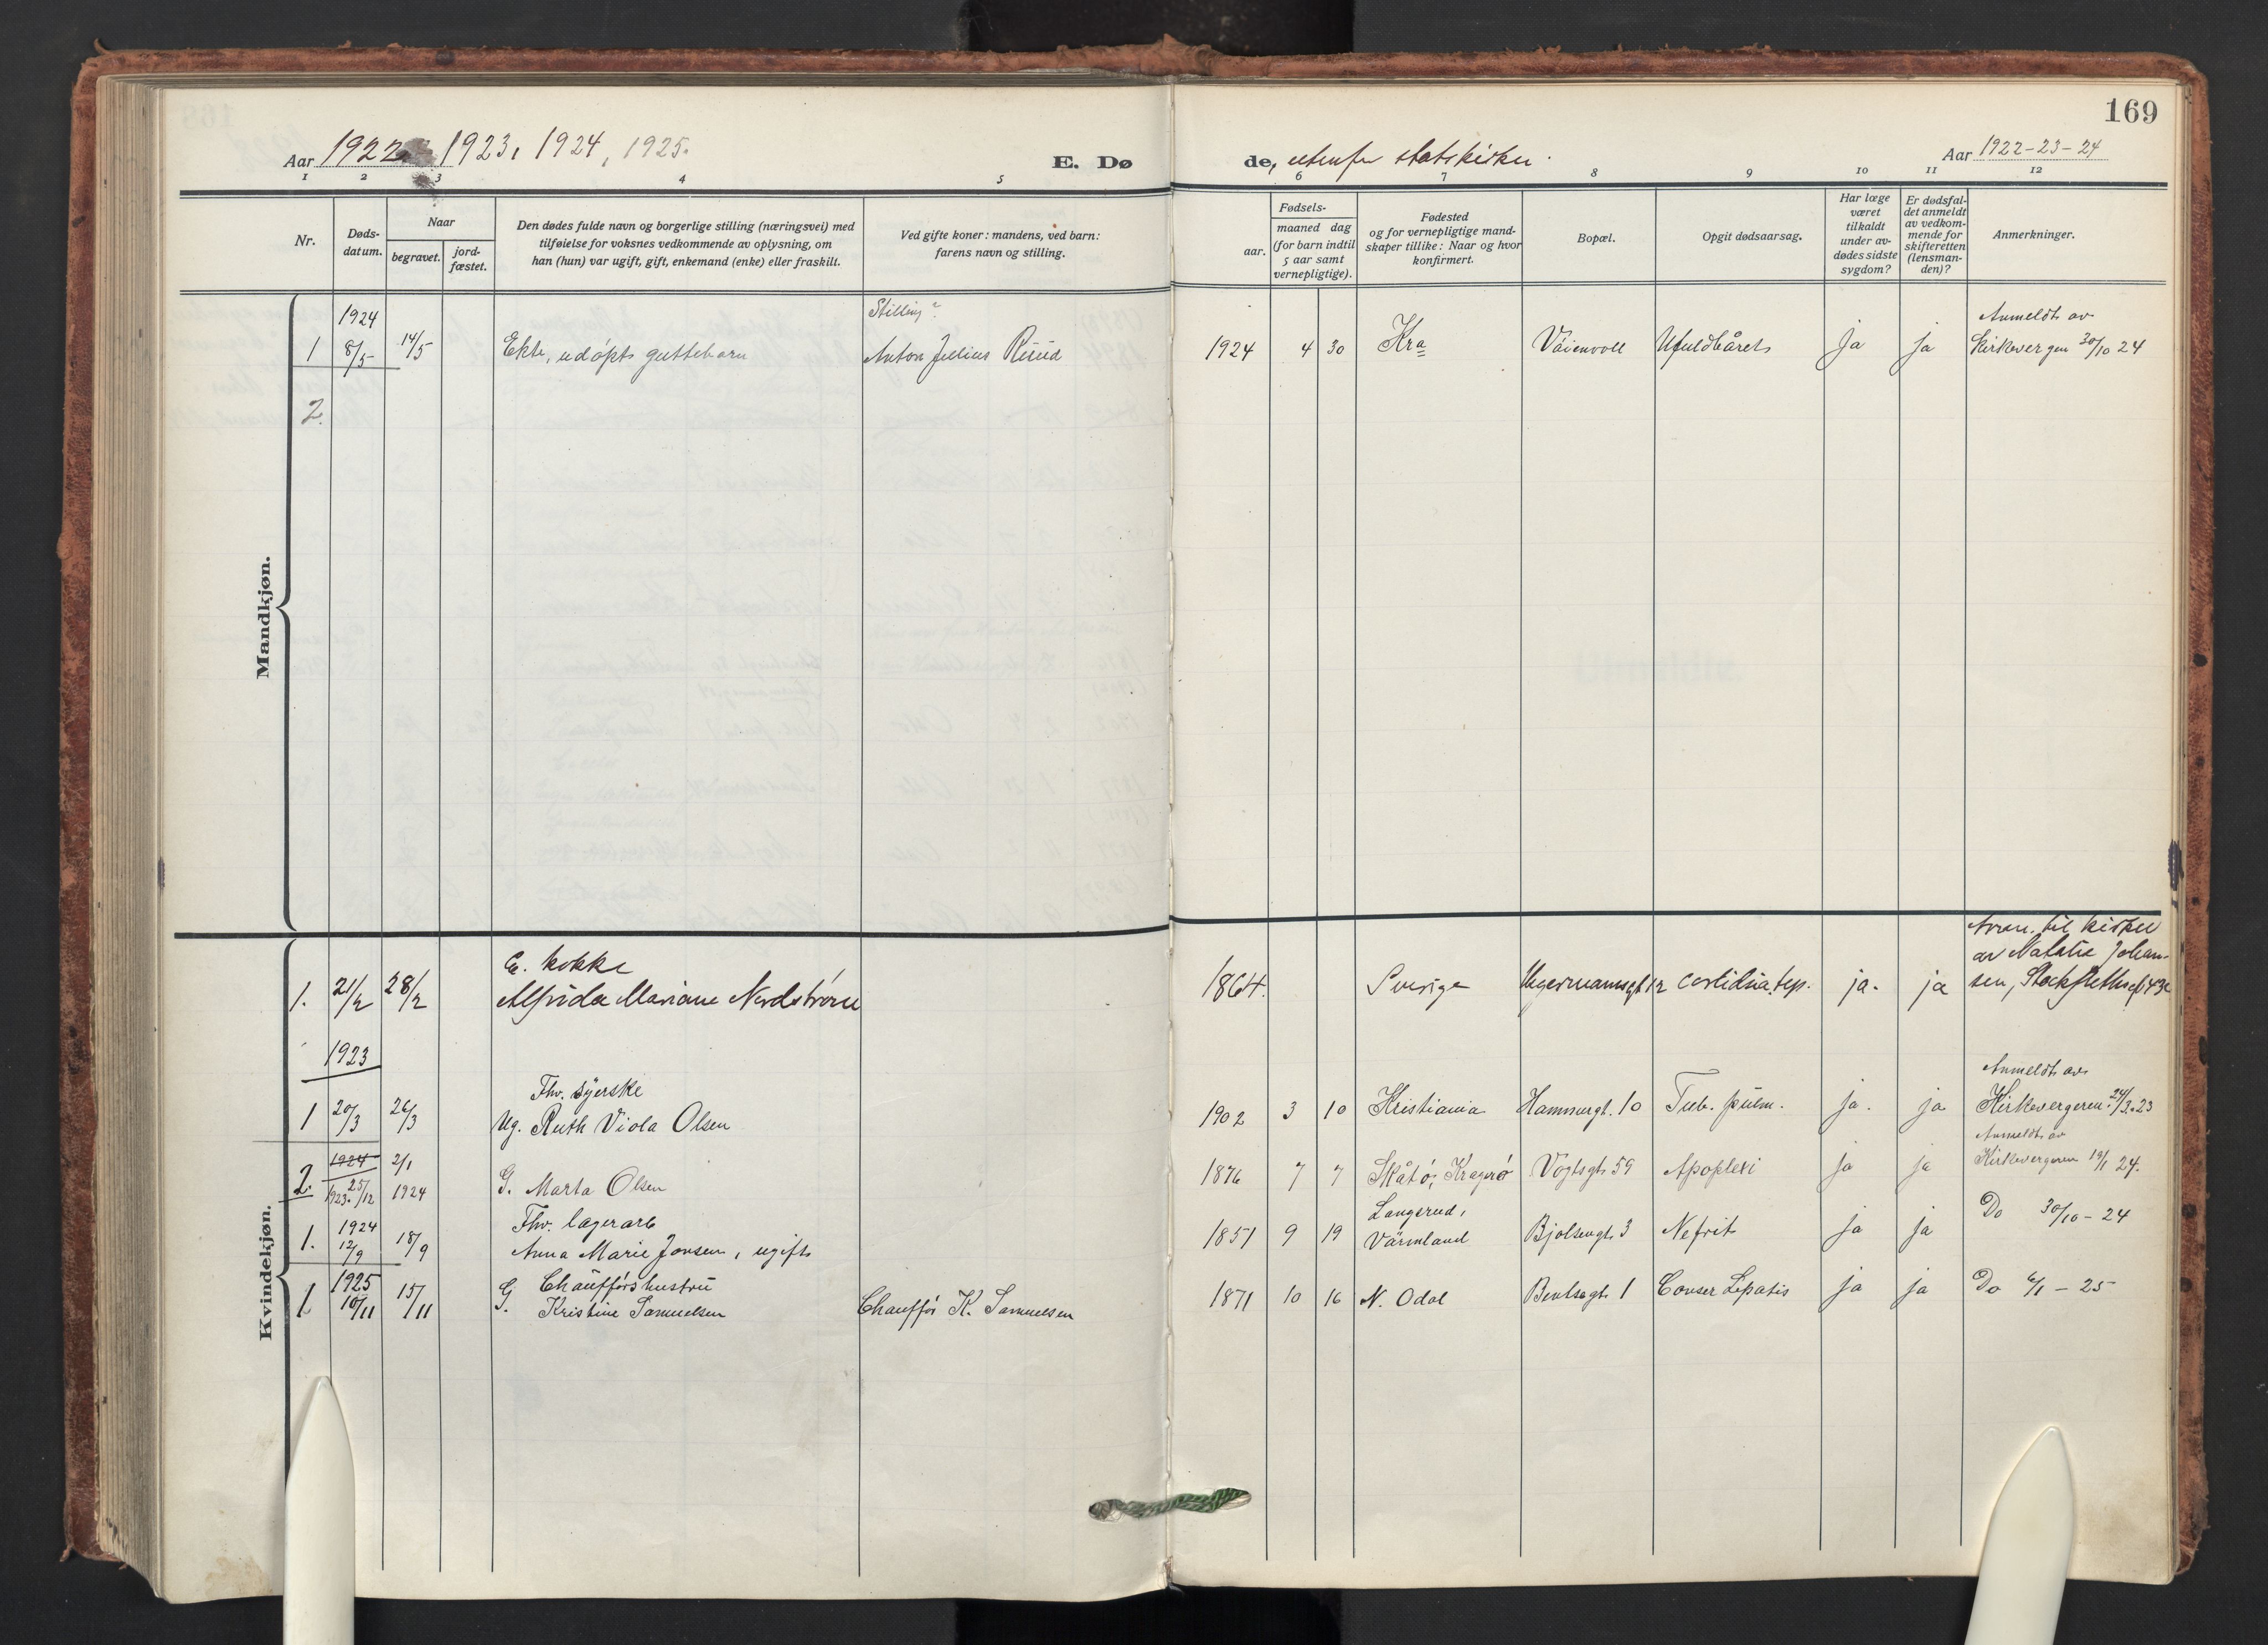 169
Aar 1922 1923, 1924, 1925.
E. Dø
de, utenfor statskirken.
Aar 1922-23-24
1 2 3 4 5
6 7 8 9 10 11 12
Nr.
Døds-
datum.
Naar
begravet.
jord-
fæstet.
Den dødes fulde navn og borgerlige stilling (næringsvei) med
tilføielse for voksnes vedkommende av oplysning, om
han (hun) var ugift, gift, enkemand (enke) eller fraskilt.
Ved gifte koner: mandens, ved barn:
farens navn og stilling.
Fødsels-
aar.
maaned dag
(for barn indtil
5 aar samt
vernepligtige).
Fødested
og for vernepligtige mand-
skaper tillike: Naar og hvor
konfirmert.
Bopæl.
Opgit dødsaarsag.
Har læge
været
tilkaldt
under av-
dødes sidste
sygdom?
Er dødsfal-
det anmeldt
av vedkom-
mende for
skifteretten
(lensman-
den)?
Anmerkninger.
Mandkjøn.
1924
Stilling?
Anmeldt av
1 8/5 14/5 Ekte, udøpt guttebarn Anton Julius Ruud 1924 4 30 Kra Väienvoll Ufuldbåret ja ja Kirkevergen 30/10 24
2.
Kvindekjøn.
E. kokke
til kirken
av Natalie Johan-
1. 21/2 28/2 Alfrida Mariane Nordstrøm 1864. Sverige Ugermannsgt 12 ja. ja sen, Stockflethsgt 43
1923
Fhv. syerske
Anmeldt av
1 20/3 26/3 Ug. Ruth Viola Olsen 1902 3 10 Kristiania Hammergt. 10 Tub. pulm. ja. ja Kirkevergeren 24/3.23
1924 2/1
Anmeldt av
2. 1923. 25/12 1924 G. Marta Olsen 1876 7 7 Skåtø, Kragerø Vogtsgt 59 Apoplexi ja ja Kirkevergeren 19/1 24.
1924
Fhv. lagerarb
Langerud,
1. 12/9 18/9 Anna Marie Jonsen, ugift 1851 9 19 Värmland Bjølsengt. 3 Nefrit ja ja Do 30/10-24
1925
Chaufførshustru
1 10/11 15/11 G. Kristine Samuelsen Chauffør K. Samuelsen 1871 10 16 N. Odal Bentsegt. 1 ja ja Do 6/1 - 25